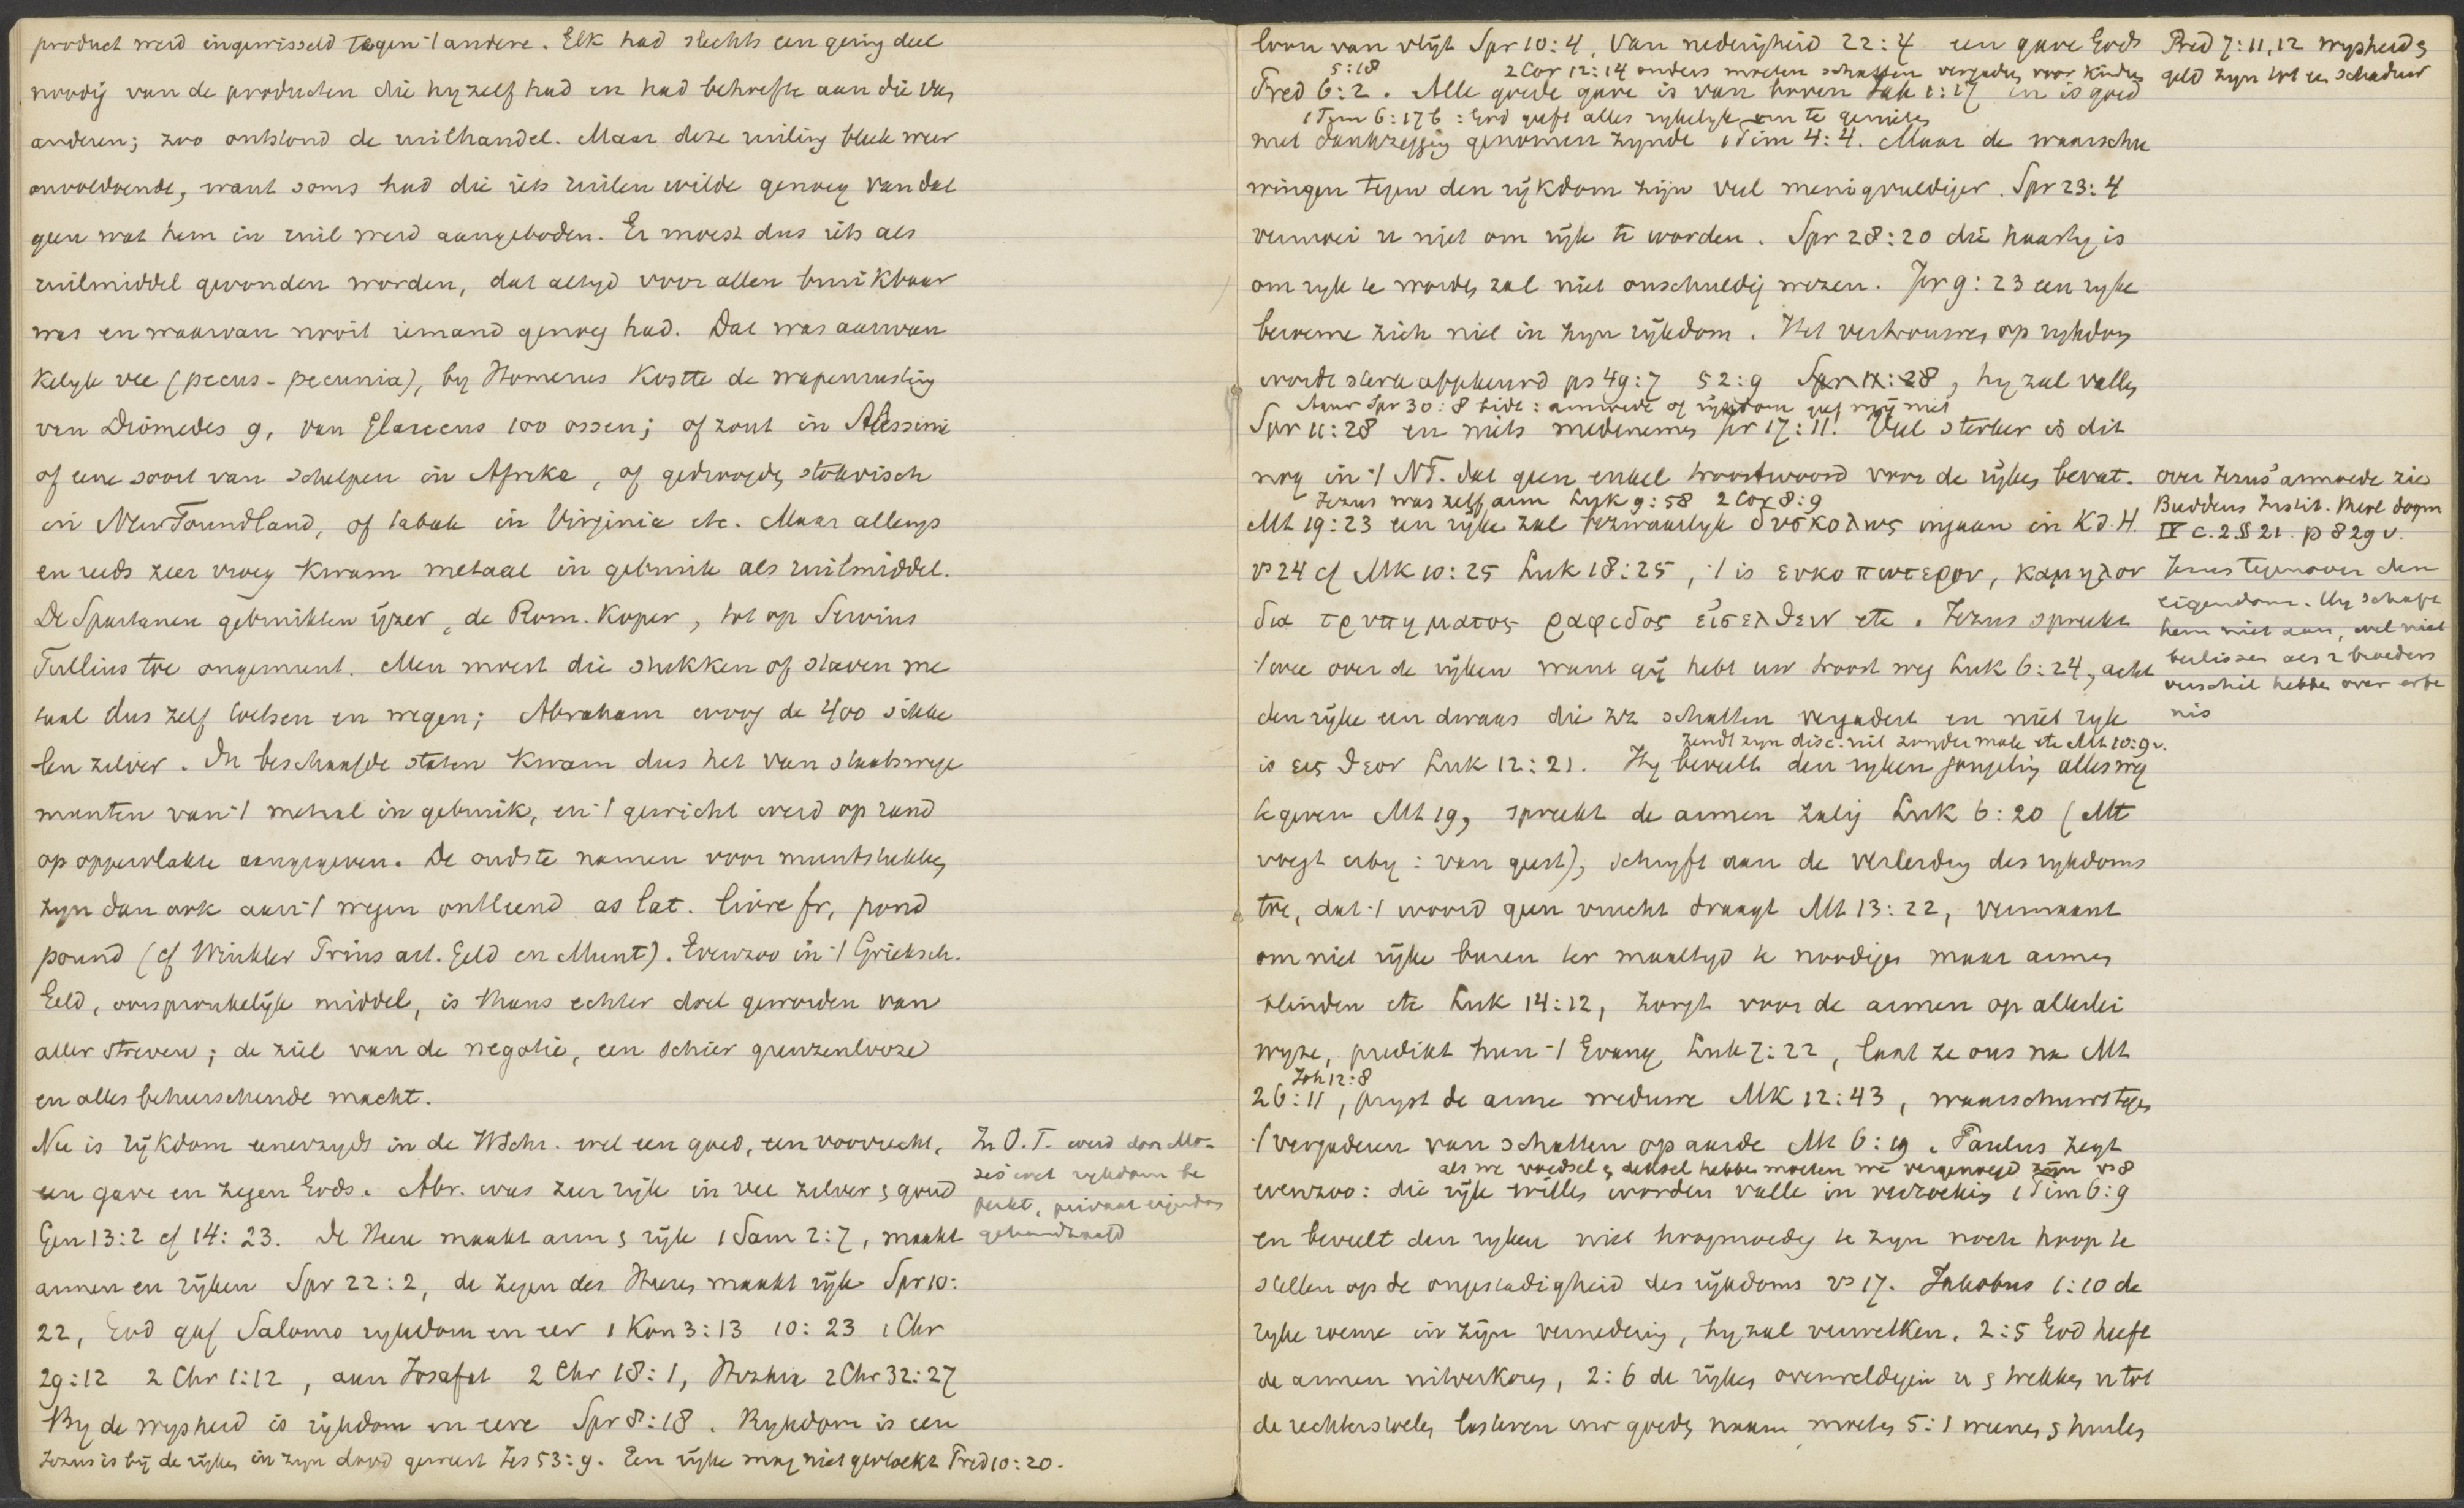 product werd ingewisseld tegen 't andere. Elk had slechts een gering deel
noodig van de producten die hy zelf had en had behoefte aan die van
anderen; zoo ontstond de ruilhandel. Maar deze ruiling bleek weer
onvoldoende, want soms had die iets ruilen wilde genoeg van dat
geen wat hem in ruil werd aangeboden. Er moest dus iets als
ruilmiddel gevonden worden, dat altyd voor allen bruikbaar
was en waarvan nooit iemand genoeg had. Dat was aanvan
kelyk vee (pecus - pecunia), by Homerus kostte de wapenrusting
van Diomedes 9, van Glaucus 100 ossen; of zout in Abessinie
of eene soort van schelpen in Afrika, of gedroogde stokvisch
in NewFoundland, of tabak in Virginia etc. Maar allengs
en reeds zeer vroeg kwam metaal in gebruik als ruilmiddel.
De Spartanen gebruikten ijzer, de Rom. koper, tot op Servius
Tullius toe ongemunt. Men moest die stukken of staven me
taal dus zelf toetsen en wegen; Abraham woog de 400 sikke
len zilver. In beschaafde staten kwam dus het van staatswege
munten van 't metaal in gebruik, en 't gewicht werd op rand
op oppervlakte aangegeven. De oudste namen voor muntstukken
zyn dan ook aan 't wegen ontleend as lat. livre fr, pond
pound (cf Winkler Prins art. Geld en Munt). Evenzoo in 't Grieksch.
Geld, oorspronkelijk middel, is thans echter doel geworden van
aller streven; de ziel van de negotie, een schier grenzenlooze
en alles beheerschende macht.
Nu is rijkdom eenerzyds in de HSchr. wel een goed, een voorrecht,
een gave en zegen Gods. Abr. was zeer rijk in vee zilver & goud
Gen 13:2 cf 14:23. De Heere maakt arm & rijk 1 Sam 2:7, maakt
armen en rijken Spr 22:2, de zegen des Heeren maakt rijk Spr 10:
22, God gaf Salomo rykdom en eer 1 Kon 3:13 10:23 1 Chr
29:12 2 Chr 1:12, aan Josafat 2 Chr 18:1, Hizkia 2 Chr 32:27
By de wysheid is rijkdom en eere Spr 8:18. Rykdom is een
Jezus is bij de rijken in zyn dood geweest Jes 53:9. Een rijke mag niet gevloekt Pred 10:20.
In O.T. werd door Mo-
zes wet rykdom be
perkt, privaat eigendom
gehandhaafd
loon van vlijt Spr 10:4, Van nederigheid 22:4 een gave Gods
5:18 2 Cor 12:14 ouders moeten schatten vergaderen voor kinderen
Pred 6:2. Alle goede gave is van boven Jak 1:17 en is goed
1 Tim 6:17b : God geeft alles rykelyk om te genieten
met dankzegging genomen zynde 1 Tim 4:4. Maar de waarschu
wingen tegen den rijkdom zijn veel menigvuldiger. Spr 23:4
vermoei u niet om rijk te worden. Spr 28:20 die haastig is
om ryk te worden zal niet onschuldig wezen. Jer 9:23 een ryke
beroeme zich niet in zyn rijkdom. Het vertrouwen op rykdom
wordt sterk afgekeurd ps 49:7 52:9 Spr 11:28, hy zal vallen
Maar Spr 30:8 bidt: armoede of rijkdom geef mij niet
Spr 11:28 en niets medenemen Jer 17:11! Veel sterker is dit
nog in 't NT. dat geen enkel troostwoord voor de rijken bevat.
Jezus was zelf arm Luk 9:58 2 Cor 8:9
Mt 19:23 een rijke zal bezwaarlyk δυσκολως ingaan in K.d.H.
vs 24 cf Mk 10:25 Luk 18:25, 't is ευκοπωτερον, καμηλον
δια τρυπηματος ραφιδος εἰσελθειν etc. Jezus spreekt
't wee over de rijken want gij hebt uw troost weg Luk 6:24, acht
den rijke een dwaas die zich schatten vergadert en niet ryk
zendt zyn disc. uit zonder male etc Mt 10:9v.
is εις θεον Luk 12:21. Hy beveelt den ryken jongeling alles weg
te geven Mt 19, spreekt de armen zalig Luk 6:20 (Mt
voegt erby: van geest), schryft aan de verleiding des rykdoms
toe, dat 't woord geen vrucht draagt Mt 13:22, vermaant
om niet rijke buren ter maaltyd te noodigen maar armen
blinden etc Luk 14:12, zorgt voor de armen op allerlei
wyze, predikt hun 't Evang Luk 7:22, laat ze ons na Mt
Joh 12:8
26:11, pryst de arme weduwe Mk 12:43, waarschuwt tegen
't vergaderen van schatten op aarde Mt 6:19. Paulus zegt
als we voedsel & deksel hebben moeten we vergenoegd zijn vs 8
evenzoo: die rijk willen worden vallen in verzoeking 1 Tim 6:9
en beveelt den ryken niet hoogmoedig te zyn noch hoop te
stellen op de ongestadigheid des rijkdoms vs 17. Jakobus 1:10 de
ryke roeme in zijn vernedering, hy zal verwelken. 2:5 God heeft
de armen uitverkoren, 2:6 de rijken overweldigen u & trekken u tot
de rechterstoelen lasteren uw goeden naam, moeten 5:1 weenen & huilen
Pred 7:11,12 wysheid &
geld zyn tot een schaduw
over Jezus' armoede zie
Buddeus Instit. theol dogm
IV c.2 § 21. p 829 v.
Jezus tegenover den
eigendom. Hy schaft
hem niet aan, wil niet
beslissen als 2 broeders
verschil hebben over erfe
nis